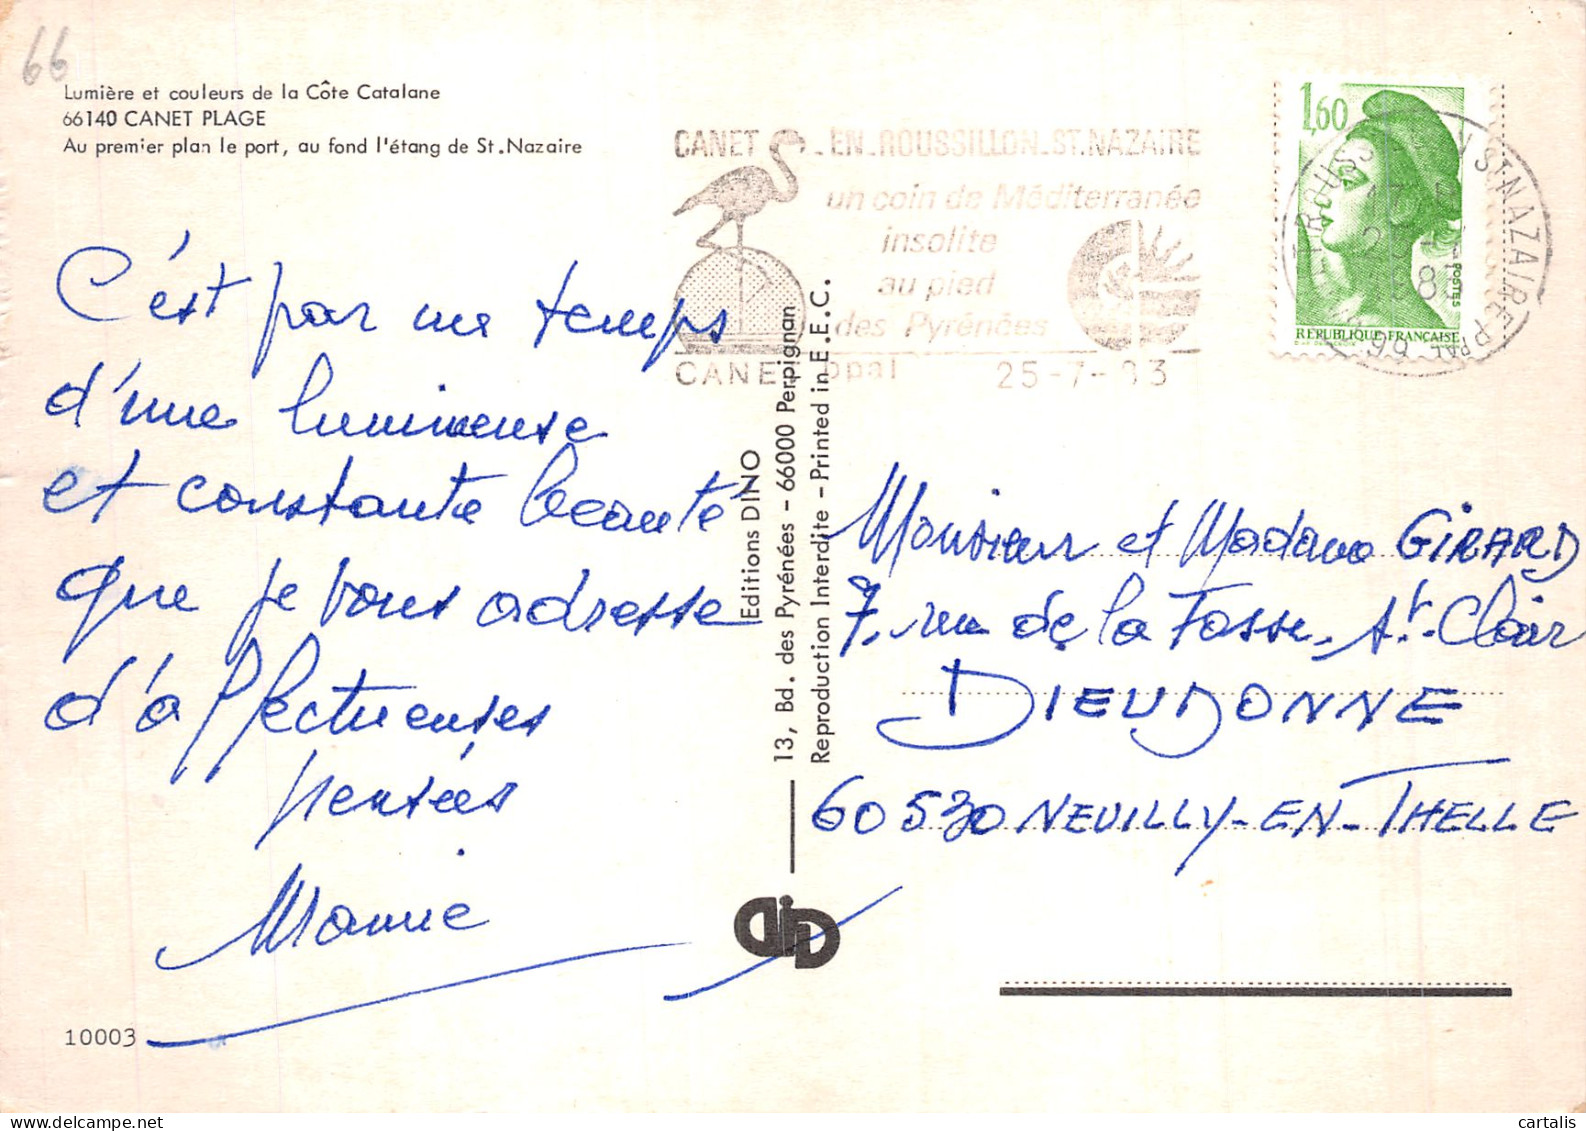 66
Lumière et couleurs de la Côte Catalane
66140 CANET PLAGE
Au premier plan le port, au fond l'étang de St.Nazaire
CANET EN ROUSSILLON-ST.NAZAIRE
un coin de Méditerranée
insolite
au pied
des Pyrénées
CANET ppal 25-7-83
1,60
POSTES
REPUBLIQUE FRANÇAISE
C'est par un temps
d'une lumineuse
et constante beauté
que je vous adresse
d'affectueuses
pensées
Mamie
Editions DINO
13, Bd. des Pyrénées - 66000 Perpignan
Reproduction Interdite - Printed in E.E.C.
Monsieur et Madame GIRARD
7, rue de la Fosse, St-Clair
DIEUDONNE
60530 NEUILLY-EN-THELLE
10003
cartalis